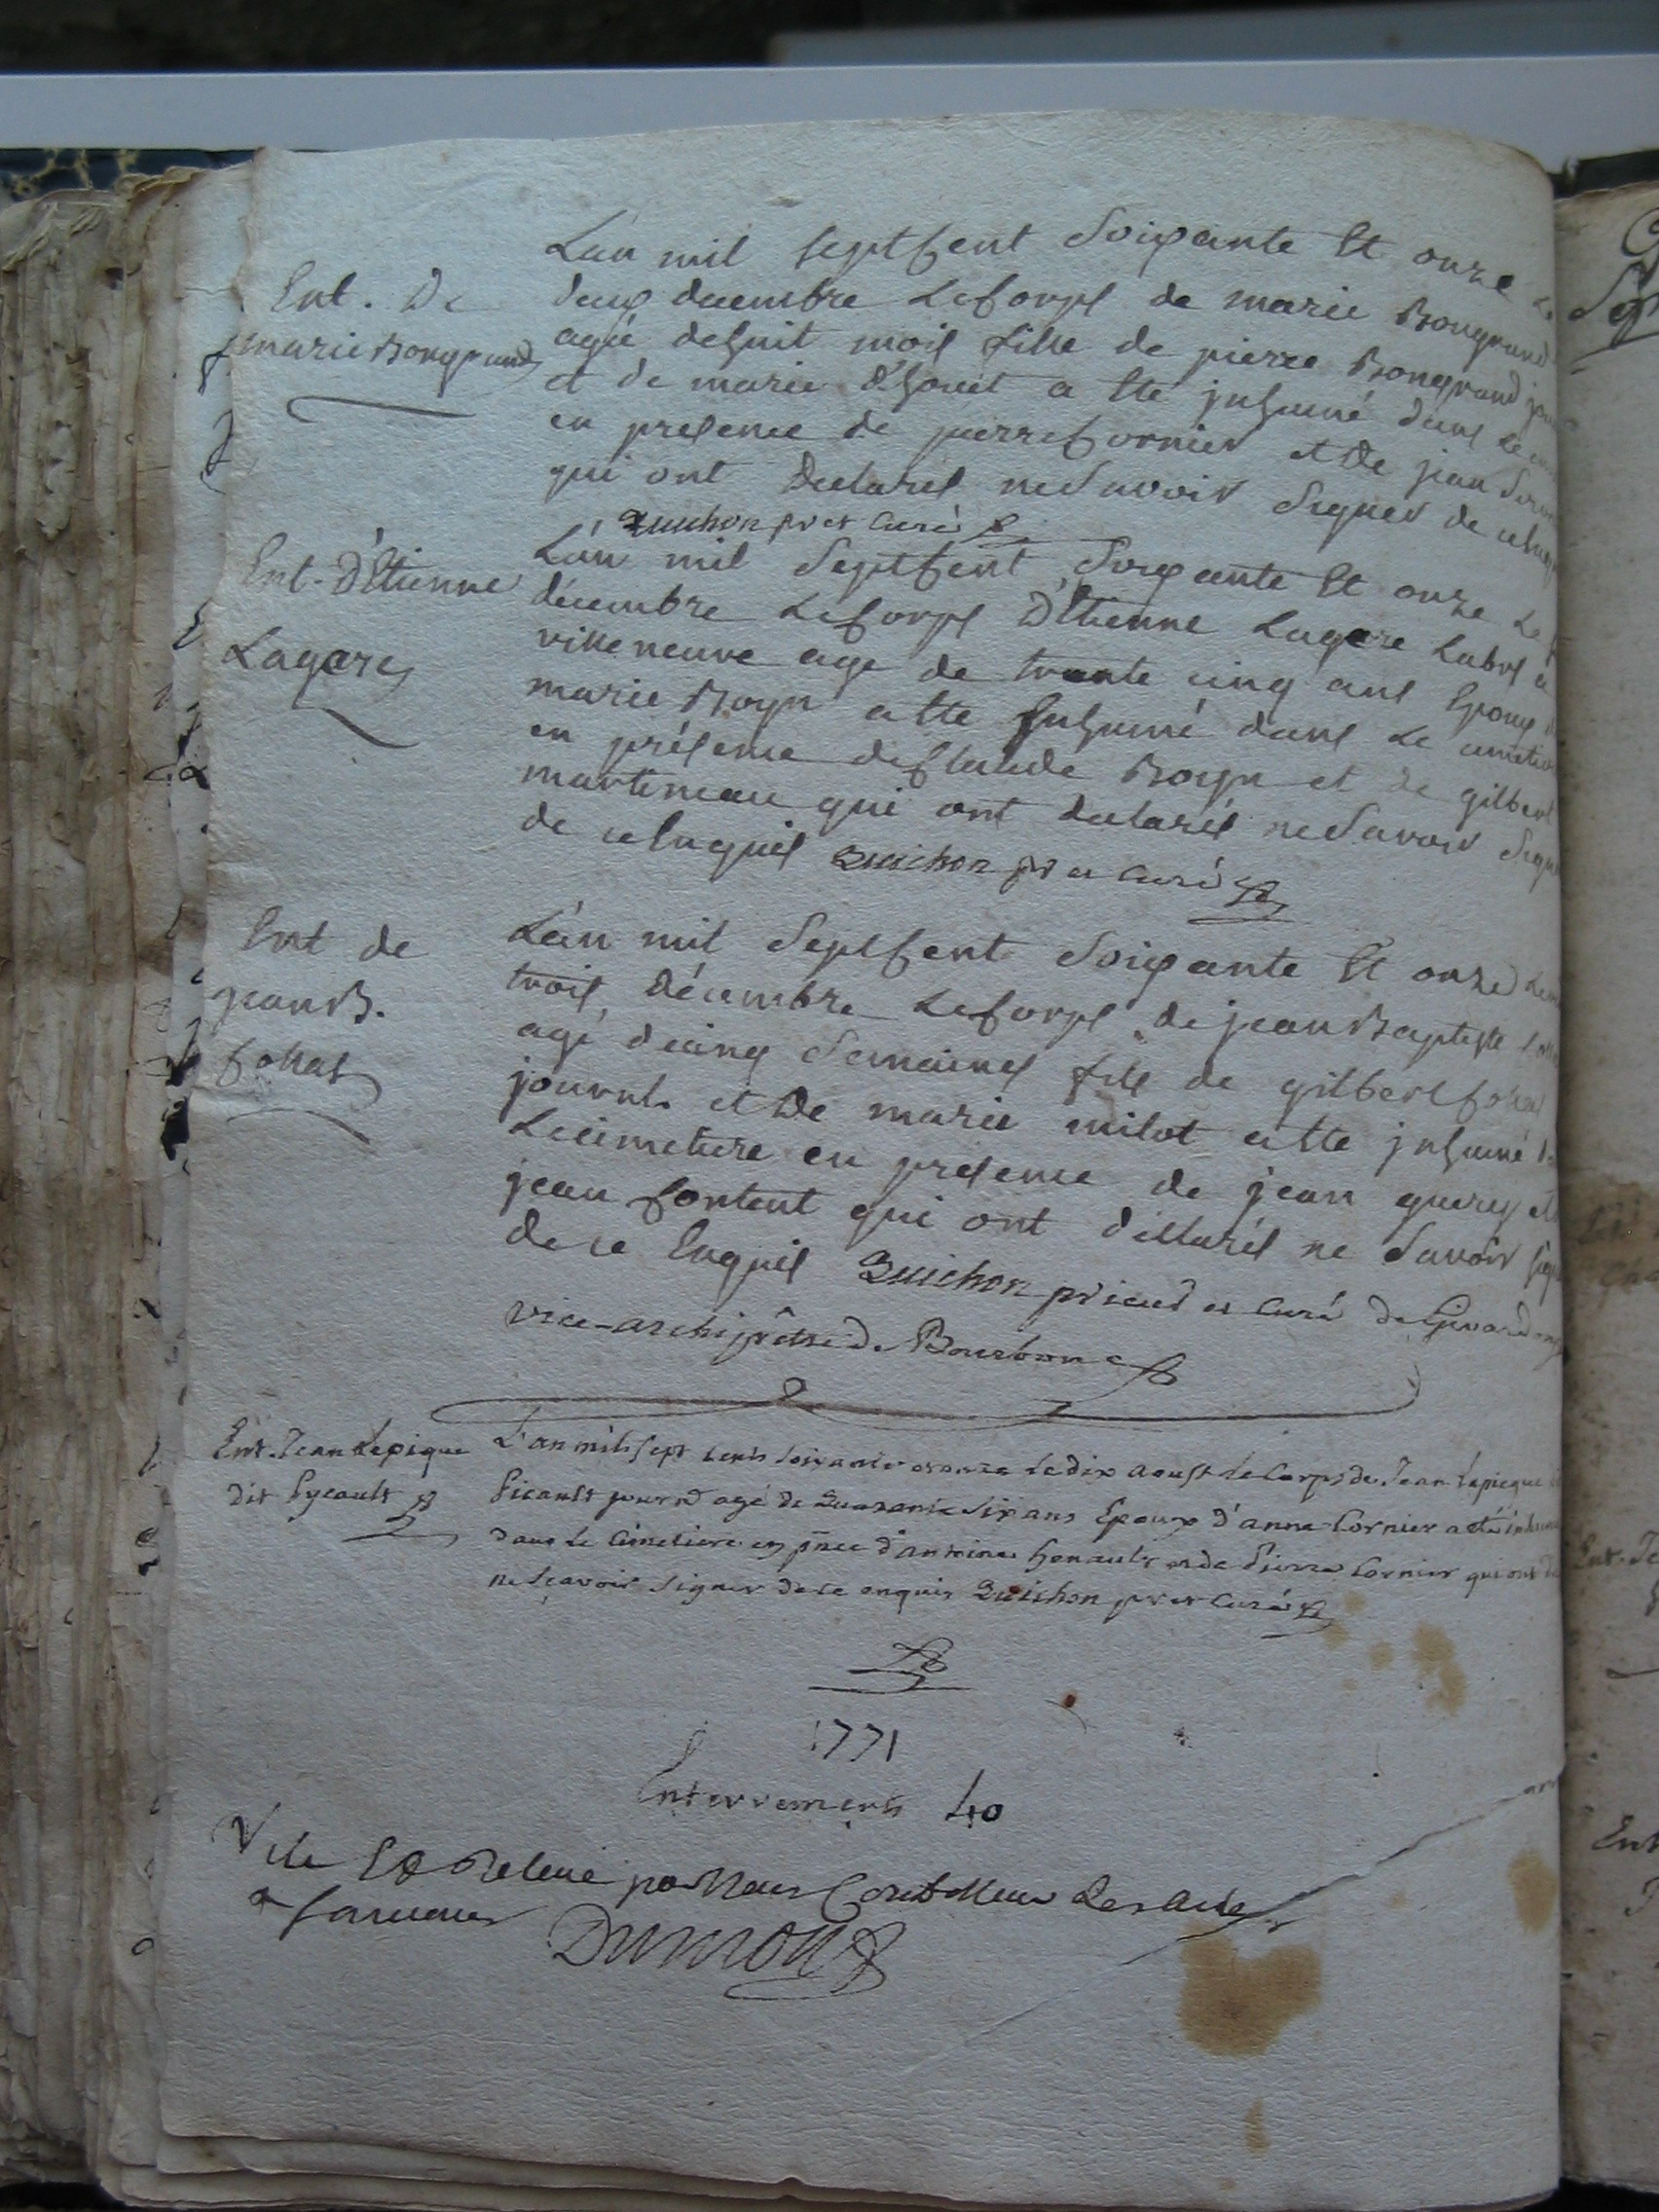 Ent. De
marie Bougrand
L'an mil septCent Soixante Et onze Le
deux decembre LeCorps de marie Bougrand
agée dehuit mois fille de pierre Bougrand jou
et de marie d'houet a Eté inhumé dans Le
en presence de pierreCornier et De jean
qui ont declarés neSavoir Signer de
Guichon pr et Curé
Ent. D'Etienne
Lagore
L'an mil SeptCent Soixante Et onze Le
décembre LeCorps D'Etienne Lagore Labr a
villeneuve age de trente cinq ans Epoux
marie Boyr a Eté Inhumé dans Le cimetier
en présence deClaude Boyr et de gilbert
martineau qui ont declarés neSavoir Signer
de ce Enquis Guichon pr et Curé
Ent de
jean B.
Collas
L'an mil SeptCent Soixante Et onze Le
trois décembre LeCorps de jean Baptiste
agé decinq Semaines fils de gilbert Collas
journ. et De marie milot a Eté inhumé
Lecimetiere en presence de jean et
jean Content qui ont déclarés ne Savoir
de ce Enquis Guichon prieur et Curé de
vice-archiprêtre De Bourbon
Ent. Jean Lepique
dit Picault
L'an mil sept cents soixante et onze Le dix aoust Le Corps de Jean Lepieque
Picault journr agé de Quarante Six ans Epoux d'anne Cornier a eté inhumé
dans Le Cimetiere en pnce d'antoine henault et de Pierre Cornier qui ont
ne sçavoir signer de ce enquis Guichon pr et Curé
1771
Enterrements 40
Vile Et Relevé par Nous Controlleur des actes
a